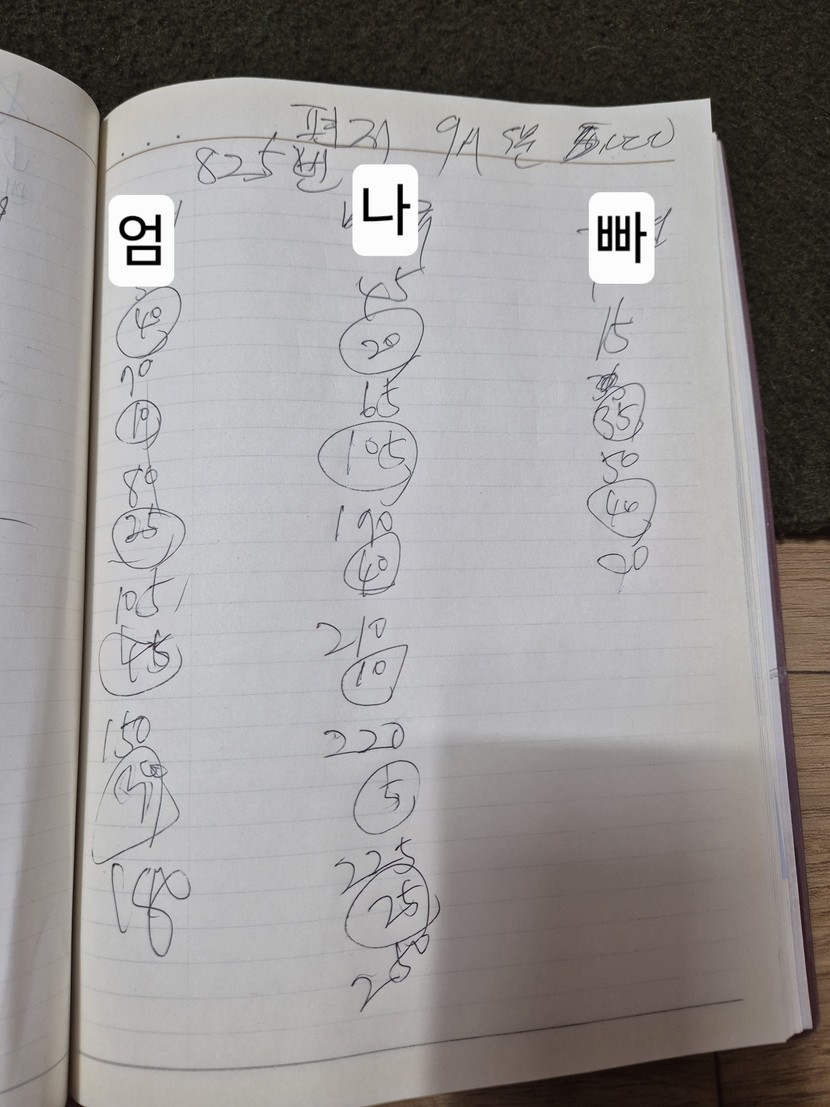 편지
825번
엄 나 빠
45
15
40 20
70 65 35
10 105 50
80 190 40
25 40 90
105 210
45 10
150 220
30 5
180 225
25
250